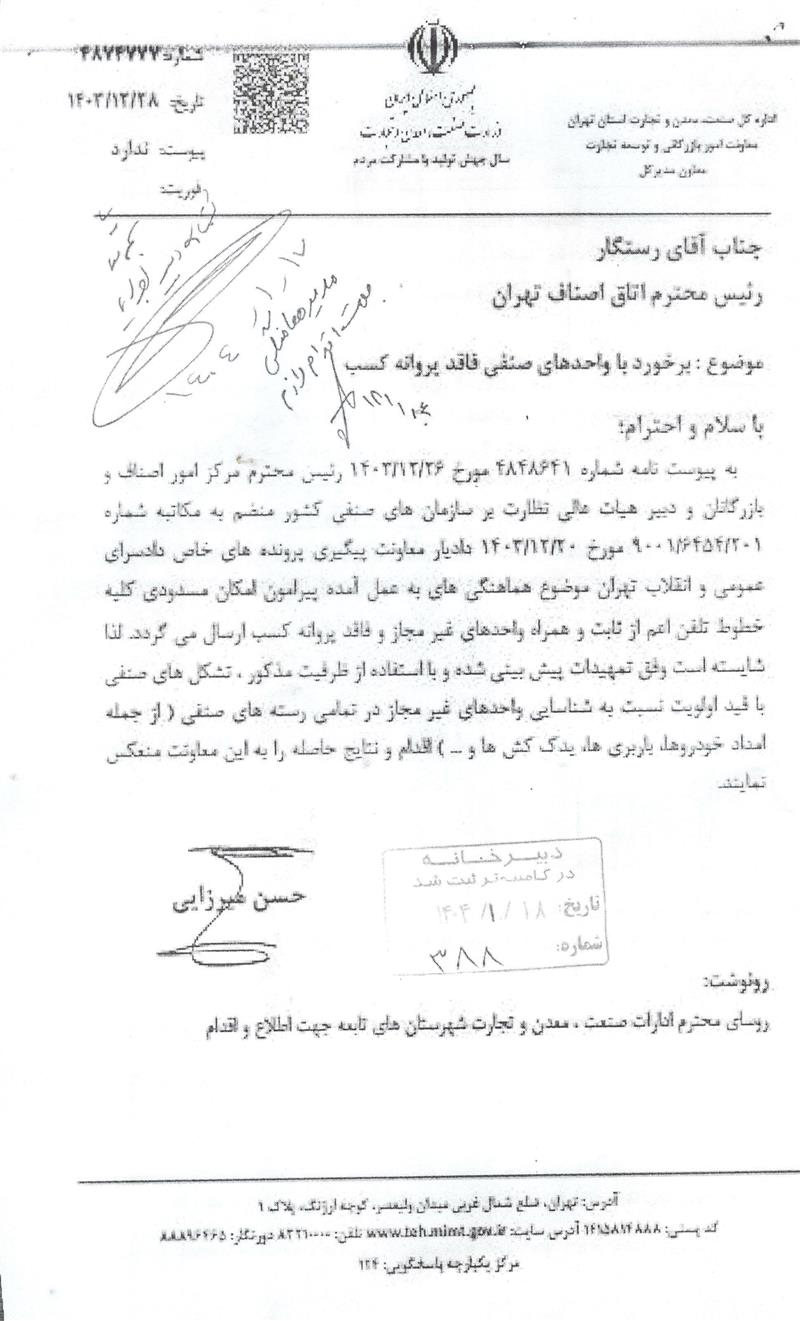 شماره: ۴۸۷۴۷۷۷
تاریخ: ۱۴۰۳/۱۲/۲۸
پیوست: ندارد
فوریت:
جمهوری اسلامی ایران
وزارت صنعت، معدن و تجارت
سال جهش تولید با مشارکت مردم
اداره کل صنعت، معدن و تجارت استان تهران
معاونت امور بازرگانی و توسعه تجارت
معاون مدیرکل
جناب آقای رستگار
رئیس محترم اتاق اصناف تهران
موضوع : برخورد با واحدهای صنفی فاقد پروانه کسب
با سلام و احترام؛
به پیوست نامه شماره ۴۸۴۸۶۴۱ مورخ ۱۴۰۳/۱۲/۲۶ رئیس محترم مرکز امور اصناف و
بازرگانان و دبیر هیات عالی نظارت بر سازمان های صنفی کشور منضم به مکاتبه شماره
۹۰۰۱/۶۴۵۴/۲۰۱ مورخ ۱۴۰۳/۱۲/۲۰ دادیار معاونت پیگیری پرونده های خاص دادسرای
عمومی و انقلاب تهران موضوع هماهنگی های به عمل آمده پیرامون امکان مسدودی کلیه
خطوط تلفن اعم از ثابت و همراه واحدهای غیر مجاز و فاقد پروانه کسب ارسال می گردد. لذا
شایسته است وفق تمهیدات پیش بینی شده و با استفاده از ظرفیت مذکور ، تشکل های صنفی
با قید اولویت نسبت به شناسایی واحدهای غیر مجاز در تمامی رسته های صنفی ( از جمله
امداد خودروها، باربری ها، یدک کش ها و ... ) اقدام و نتایج حاصله را به این معاونت منعکس
نمایند.
حسن میرزایی
دبیرخانه
در کامپیوتر ثبت شد
تاریخ: ۱۴۰۴/۱/۱۸
شماره: ۳۸۸
رونوشت:
روسای محترم ادارات صنعت ، معدن و تجارت شهرستان های تابعه جهت اطلاع و اقدام
آدرس: تهران، ضلع شمال غربی میدان ولیعصر، کوچه ارژنگ، پلاک ۱
کد پستی: ۱۴۱۵۸۱۴۸۸۸ آدرس سایت: www.teh.mimt.gov.ir تلفن: ۸۲۲۱۰۰۰۰ دورنگار: ۸۸۸۹۶۴۶۵
مرکز یکپارچه پاسخگویی: ۱۲۴